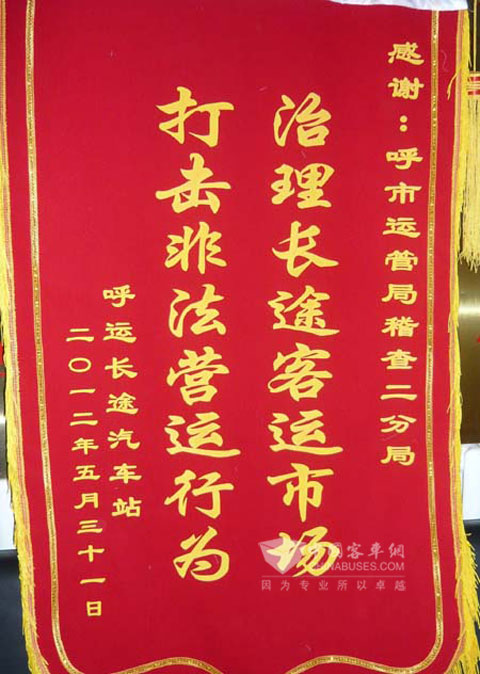 感谢：呼市运管局稽查二分局
治理长途客运市场
打击非法营运行为
呼运长途汽车站
二〇一二年五月三十一日
客車網
CHINABUSES.COM
因为专业所以卓越